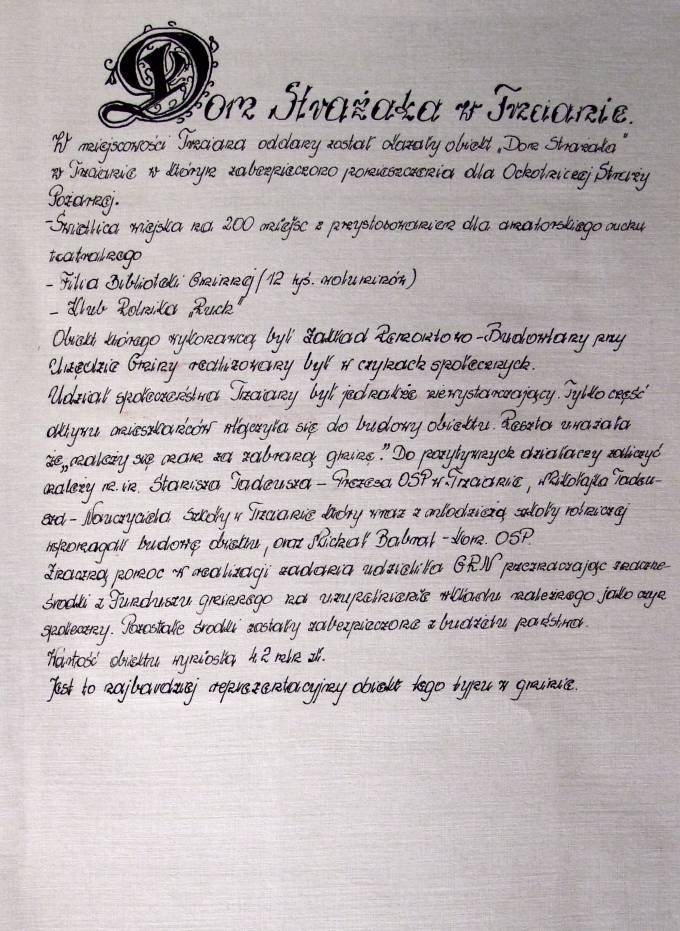 Dom Strażaka w Trzcianie.
W miejscowości Trzciana oddany został okazały obiekt „Dom Strażaka"
w Trzcianie w którym zabezpieczono pomieszczenia dla Ochotniczej Straży
Pożarnej.
- Świetlica wiejska na 200 miejsc z przystosowaniem dla amatorskiego ruchu
teatralnego
- Filia Biblioteki Gminnej (12 tyś. woluminów)
- Klub Rolnika „Ruch"
Obiekt którego wykonawcą był Zakład Remontowo-Budowlany przy
Urzędzie Gminy realizowany był w czynach społecznych.
Udział społeczeństwa Trzciany był jednakże niewystarczający. Tylko część
aktywu mieszkańców włączyła się do budowy obiektu. Reszta uważała
że „należy się nam za zabraną gminę." Do pozytywnych działaczy zaliczyć
należy m.in. Stanisza Tadeusza – Prezesa OSP w Trzcianie, Mikołajka Tadeu-
sza – Nauczyciela Szkoły w Trzcianie który wraz z młodzieżą szkoły rolniczej
wspomagali budowę obiektu, oraz Michał Babraj – Kom. OSP.
Znaczną pomoc w realizacji zadania udzieliła GRN przeznaczając znaczne
środki z Funduszu gminnego na uzupełnienie wkładu należnego jako czyn
społeczny. Pozostałe środki zostały zabezpieczone z budżetu państwa.
Wartość obiektu wyniosła 42 mln zł.
Jest to najbardziej reprezentacyjny obiekt tego typu w gminie.